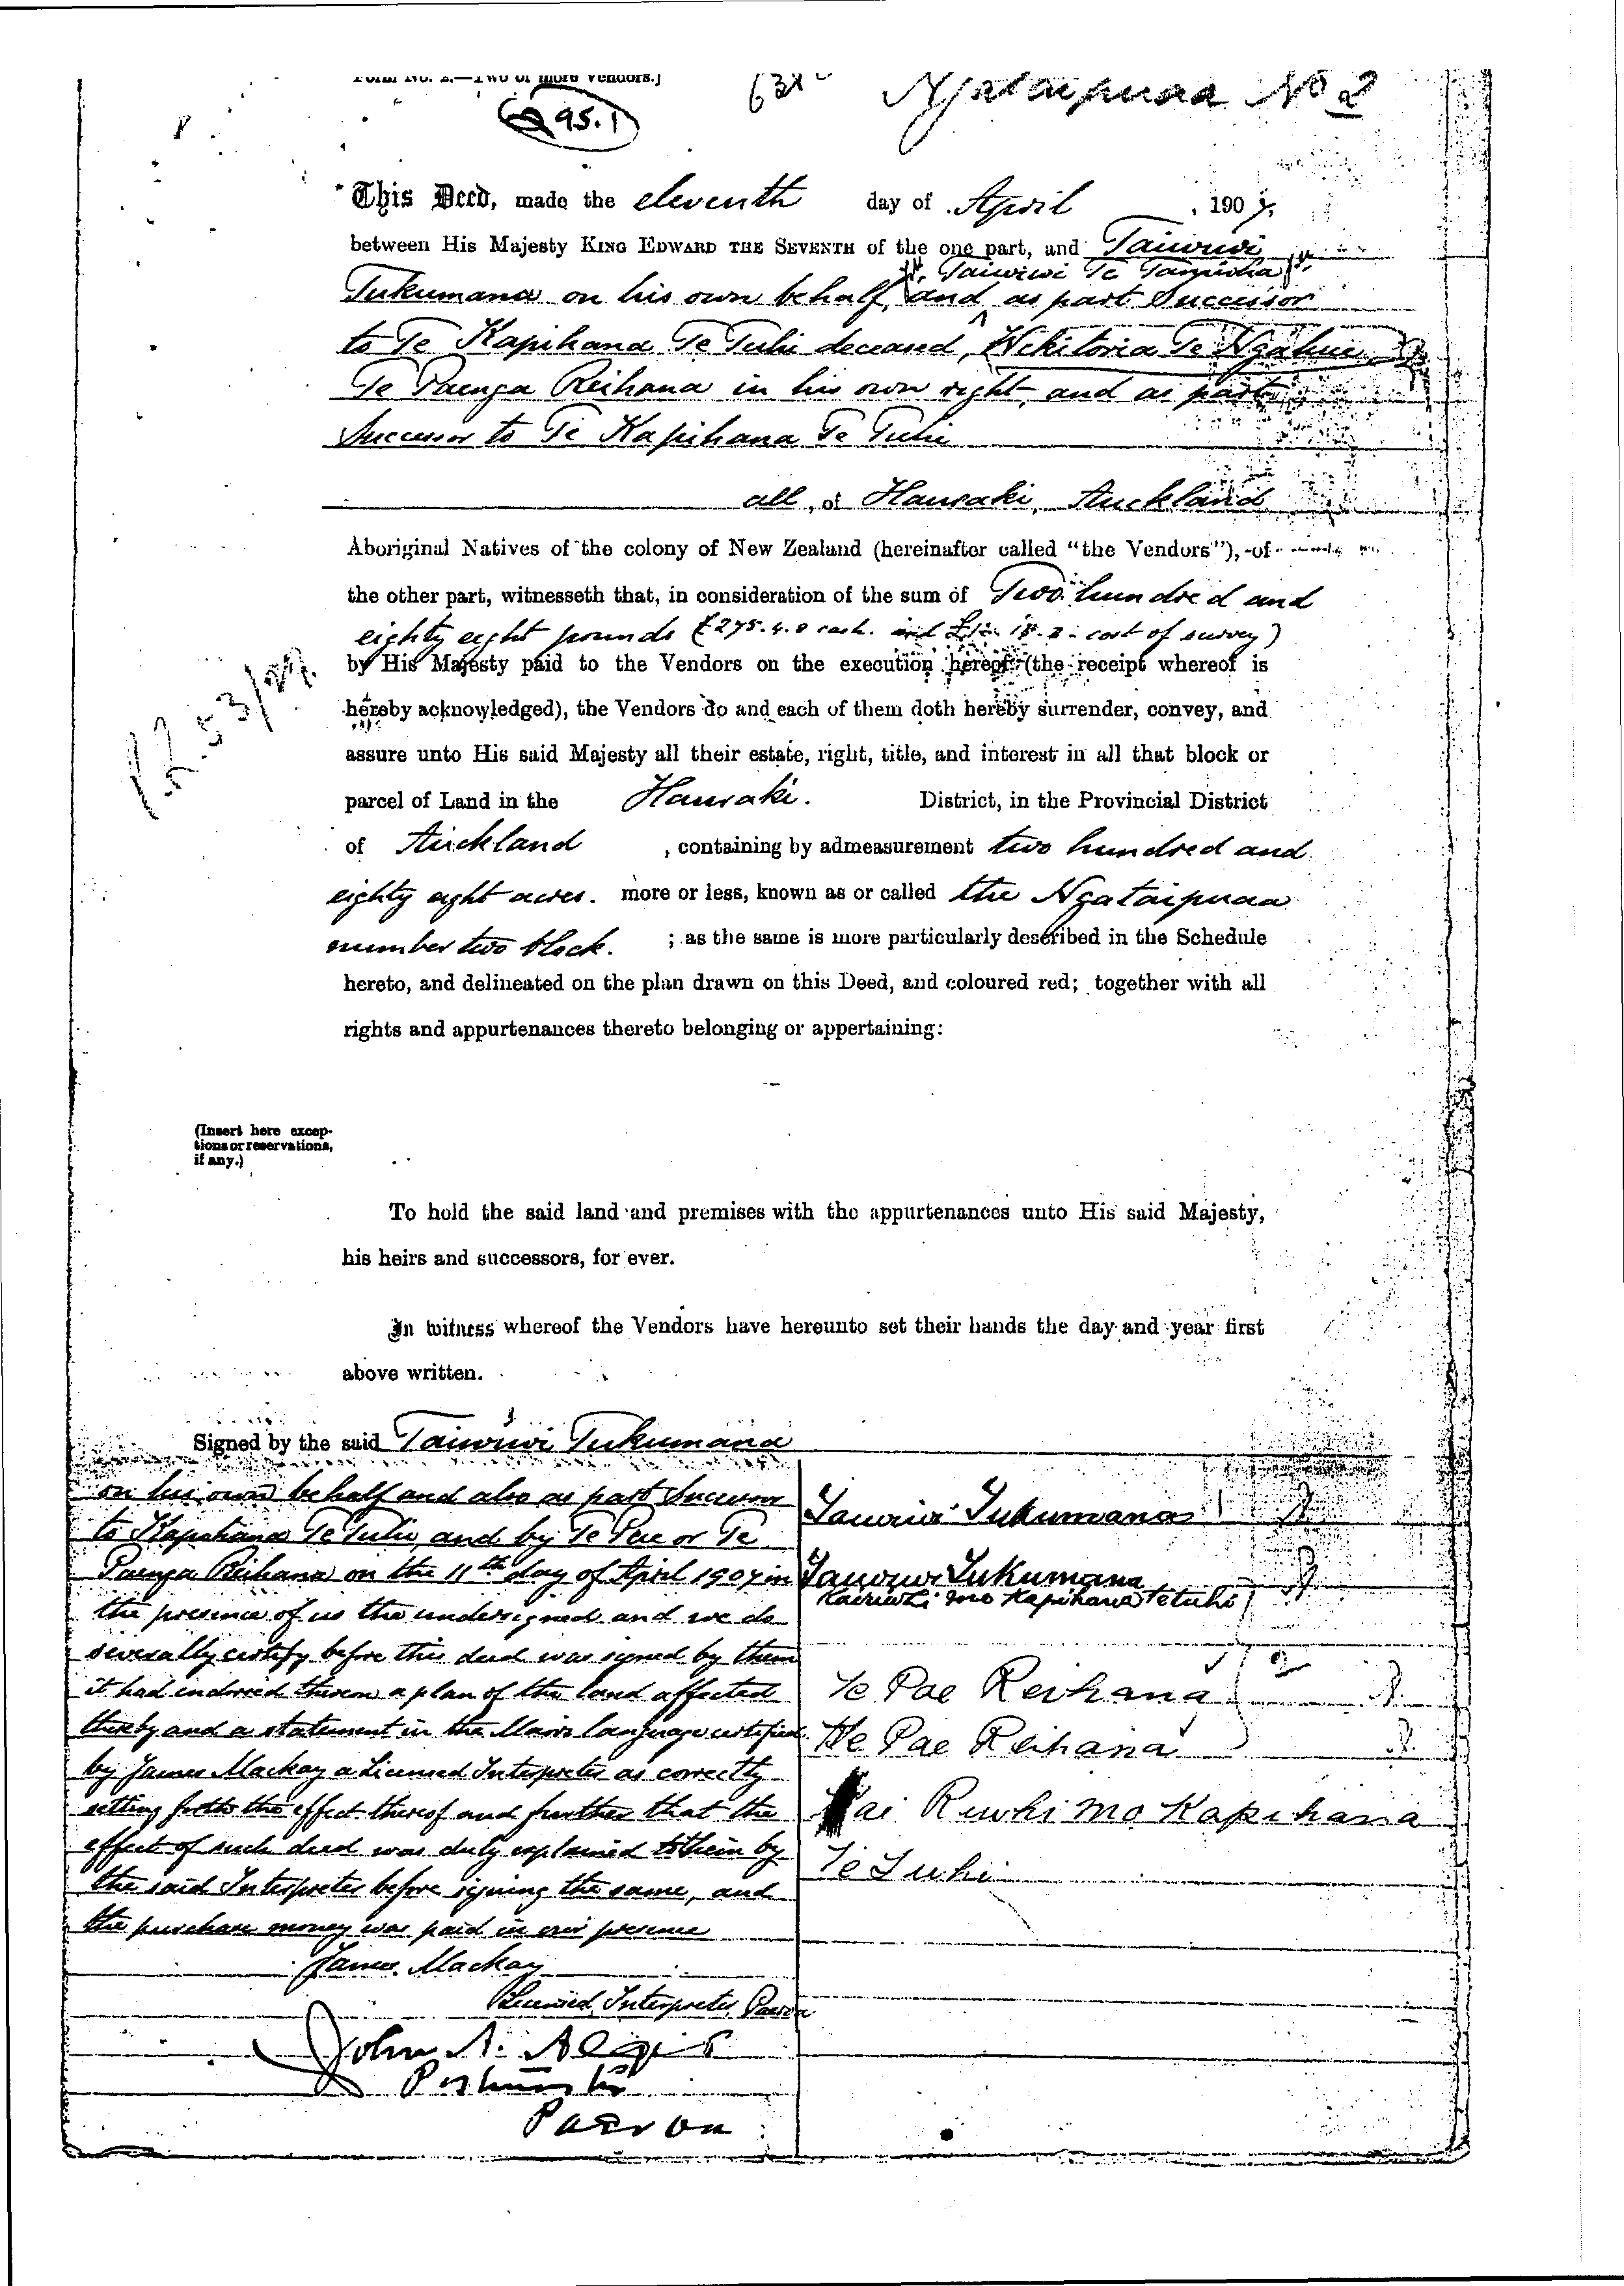 Form No. 2.—Two or more Vendors.]
Ngataipuaa No 2
95.1
This Deed, made the eleventh day of April, 1907,
between His Majesty KING EDWARD THE SEVENTH of the one part, and Taiwiwi
Taiwiwi Te
Tukumana on his own behalf, and as part Successor
to Te Kapihana Te Tuhi deceased, Wikitoria Te Ngahue
Te Paenga Reihana in his own right, and as part
Successor to Te Kapihana Te Tuhi
all of Hauraki, Auckland
Aboriginal Natives of the colony of New Zealand (hereinafter called "the Vendors"), of
the other part, witnesseth that, in consideration of the sum of Two hundred and
eighty eight pounds (£275.4.0 cash. and cost of survey)
by His Majesty paid to the Vendors on the execution hereof (the receipt whereof is
hereby acknowledged), the Vendors do and each of them doth hereby surrender, convey, and
assure unto His said Majesty all their estate, right, title, and interest in all that block or
parcel of Land in the Hauraki. District, in the Provincial District
of Auckland, containing by admeasurement two hundred and
eighty eight acres. more or less, known as or called the Ngataipuaa
number two block. ; as the same is more particularly described in the Schedule
hereto, and delineated on the plan drawn on this Deed, and coloured red; together with all
rights and appurtenances thereto belonging or appertaining:
(Insert here excep-
tions or reservations,
if any.)
To hold the said land and premises with the appurtenances unto His said Majesty,
his heirs and successors, for ever.
In witness whereof the Vendors have hereunto set their hands the day and year first
above written.
Signed by the said Taiwiwi Tukumana
on his own behalf and also as part Successor
to Kapihana Te Tuhi, and by Te Pae or Te
Paenga Reihana on the 11th day of April 1907 in
the presence of us the undersigned and we do
severally certify before this deed was signed by them
it had indorsed thereon a plan of the land affected
thereby and a statement in the Maori language certified
by James Mackay a Licensed Interpreter as correctly
setting forth the effect thereof and further that the
effect of such deed was duly explained to them by
the said Interpreter before signing the same, and
the purchase money was paid in our presence
James Mackay
Licensed Interpreter, Paeroa
John A.
Postmaster
Paeroa
Taiwiwi Tukumana
Taiwiwi Tukumana
Kairiwhi mo Kapihana Te tuhi
Te Pae Reihana
Te Pae Reihana
Kai Riwhi mo Kapihana
Te Tuhi